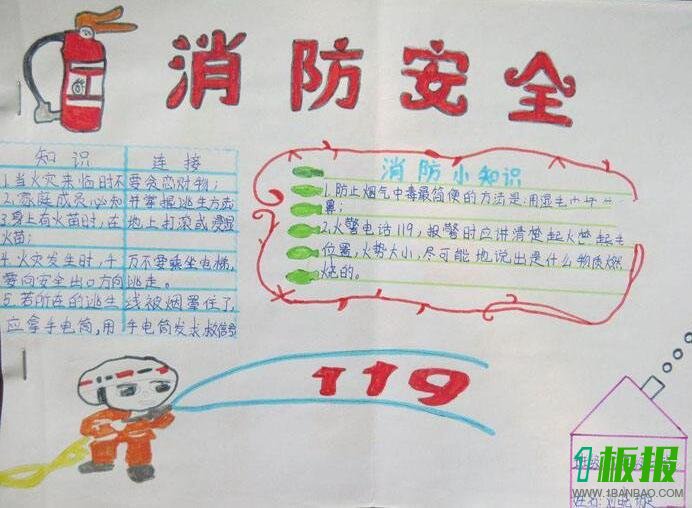 消防安全
知识 连接
1.当火灾来临时不要贪恋财物；
2.家庭成员必知并掌握逃生方法
3.身上有火苗时，在地上打滚或浸湿
火苗；
4.火灾发生时，千万不要乘坐电梯，
要向安全出口方向逃走。
5.若所在的逃生线被烟罩住了
应拿手电筒，用手电筒发求救信号
消防小知识
1.防止烟气中毒最简便的方法是：用湿毛巾
鼻；
2.火警电话119，报警时应讲清楚起火
位置，火势大小，尽可能地说出是什么物质燃
烧的。
119
1板报
WWW.1BANBAO.COM
姓名：